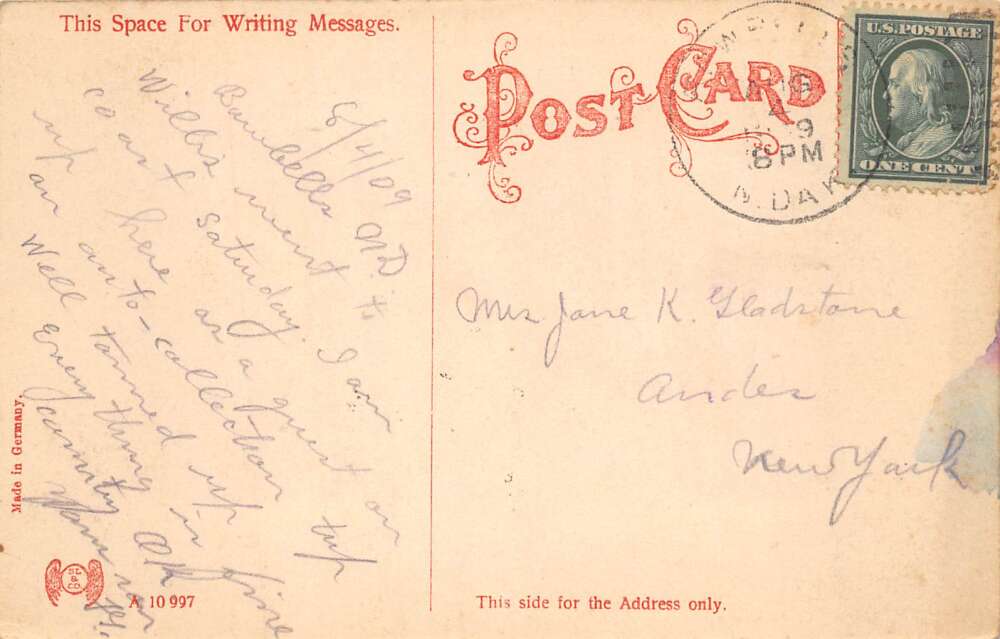 This Space For Writing Messages.
8/4/09
Bowbells N.D. to
Willis went I am
co at Saturday on
up here as a guest
an auto-collection trip
Well tanned up
Every thing in fine
county OK
Your son
POST CARD
AUG
4
9
8 PM
N. DAK
U.S. POSTAGE
ONE CENT
Mrs Jane K. Gladstone
Andes
New York
Made in Germany.
SL & CO.
A 10 997
This side for the Address only.